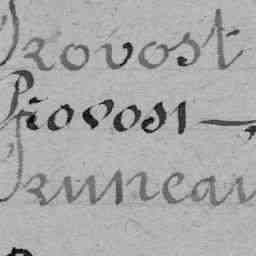 Provost
Provost
Pruneau